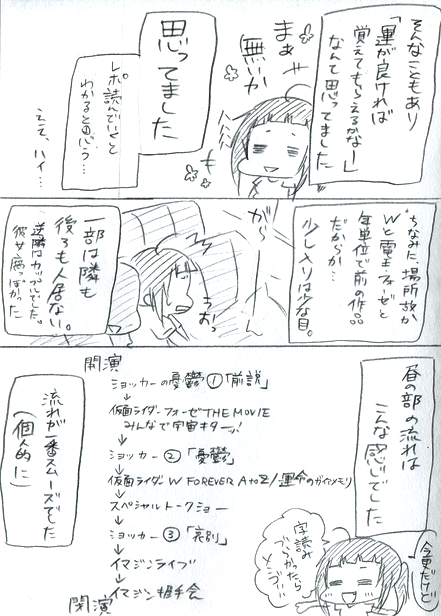 そんなこともあり
「運が良ければ
覚えてもらえるかなー」
なんて思ってました
まぁ
無いか
思ってました
レポ読んでいくと
わかると思う…
ええ、ハイ…
ちなみに、場所故か
Wと電王・フォーゼと
年単位で前の作品
だからか…
少し入りは少な目。
がら〜
うおっ
一部は隣も
後ろも人居ない。
逆隣はカップルでした。
彼女腐っぽかった
昼の部の流れは
こんな感じでした
今更だけど
字読み
づらかったら
開演
ショッカーの憂鬱①「前説」
↓
仮面ライダーフォーゼ THE MOVIE
みんなで宇宙キターッ!
↓
ショッカー②「憂鬱」
↓
仮面ライダーW FOREVER AtoZ/運命のガイアメモリ
↓
スペシャルトークショー
↓
ショッカー③「哀別」
↓
イマジンライブ
↓
イマジン握手会
閉演
流れが一番スムーズでした
(個人的に)